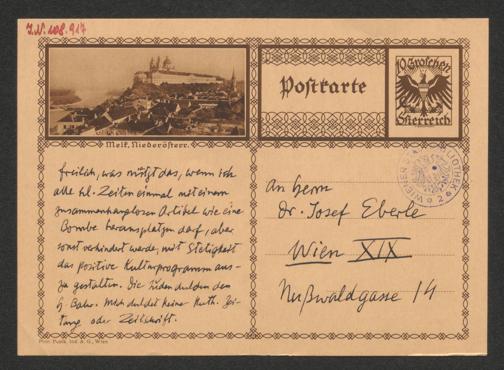 I.N. 108.917
Postkarte
10 Groschen
Österreich
Melk, Niederösterr.
freilich, was nützt das, wenn ich
alle hl. Zeiten einmal mit einem
zusammenhanglosen Artikel wie eine
Bombe herausplatzen darf, aber
sonst verhindert werde, mit Stetigkeit
das positive Kulturprogramm aus-
zugestalten. Die Juden dulden den
H. Bahr. Mich duldet keine kath. Zei-
tung oder Zeitschrift.
An Herrn
Dr. Josef Eberle
Wien XIX
Nußwaldgasse 14
WIENER BIBLIOTHEK